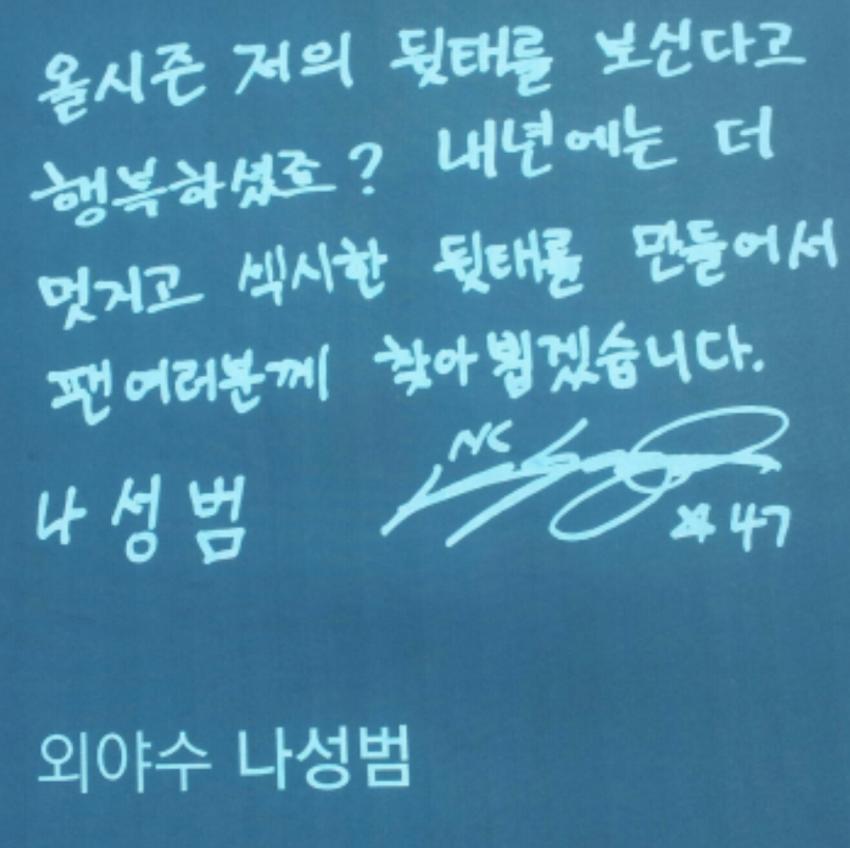 올시즌 저의 뒷태를 보신다고
행복하셨죠? 내년에는 더
멋지고 섹시한 뒷태를 만들어서
팬여러분께 찾아뵙겠습니다.
NC
나성범
#47
외야수 나성범